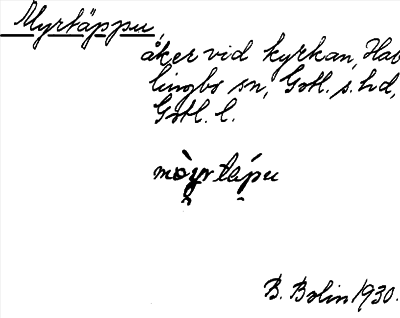 Myrtäppu,
åker vid kyrkan, Hab
lingbo sn, Gotl. s. hd,
Gotl. l.
mòyrtápu
B. Bolin 1930.